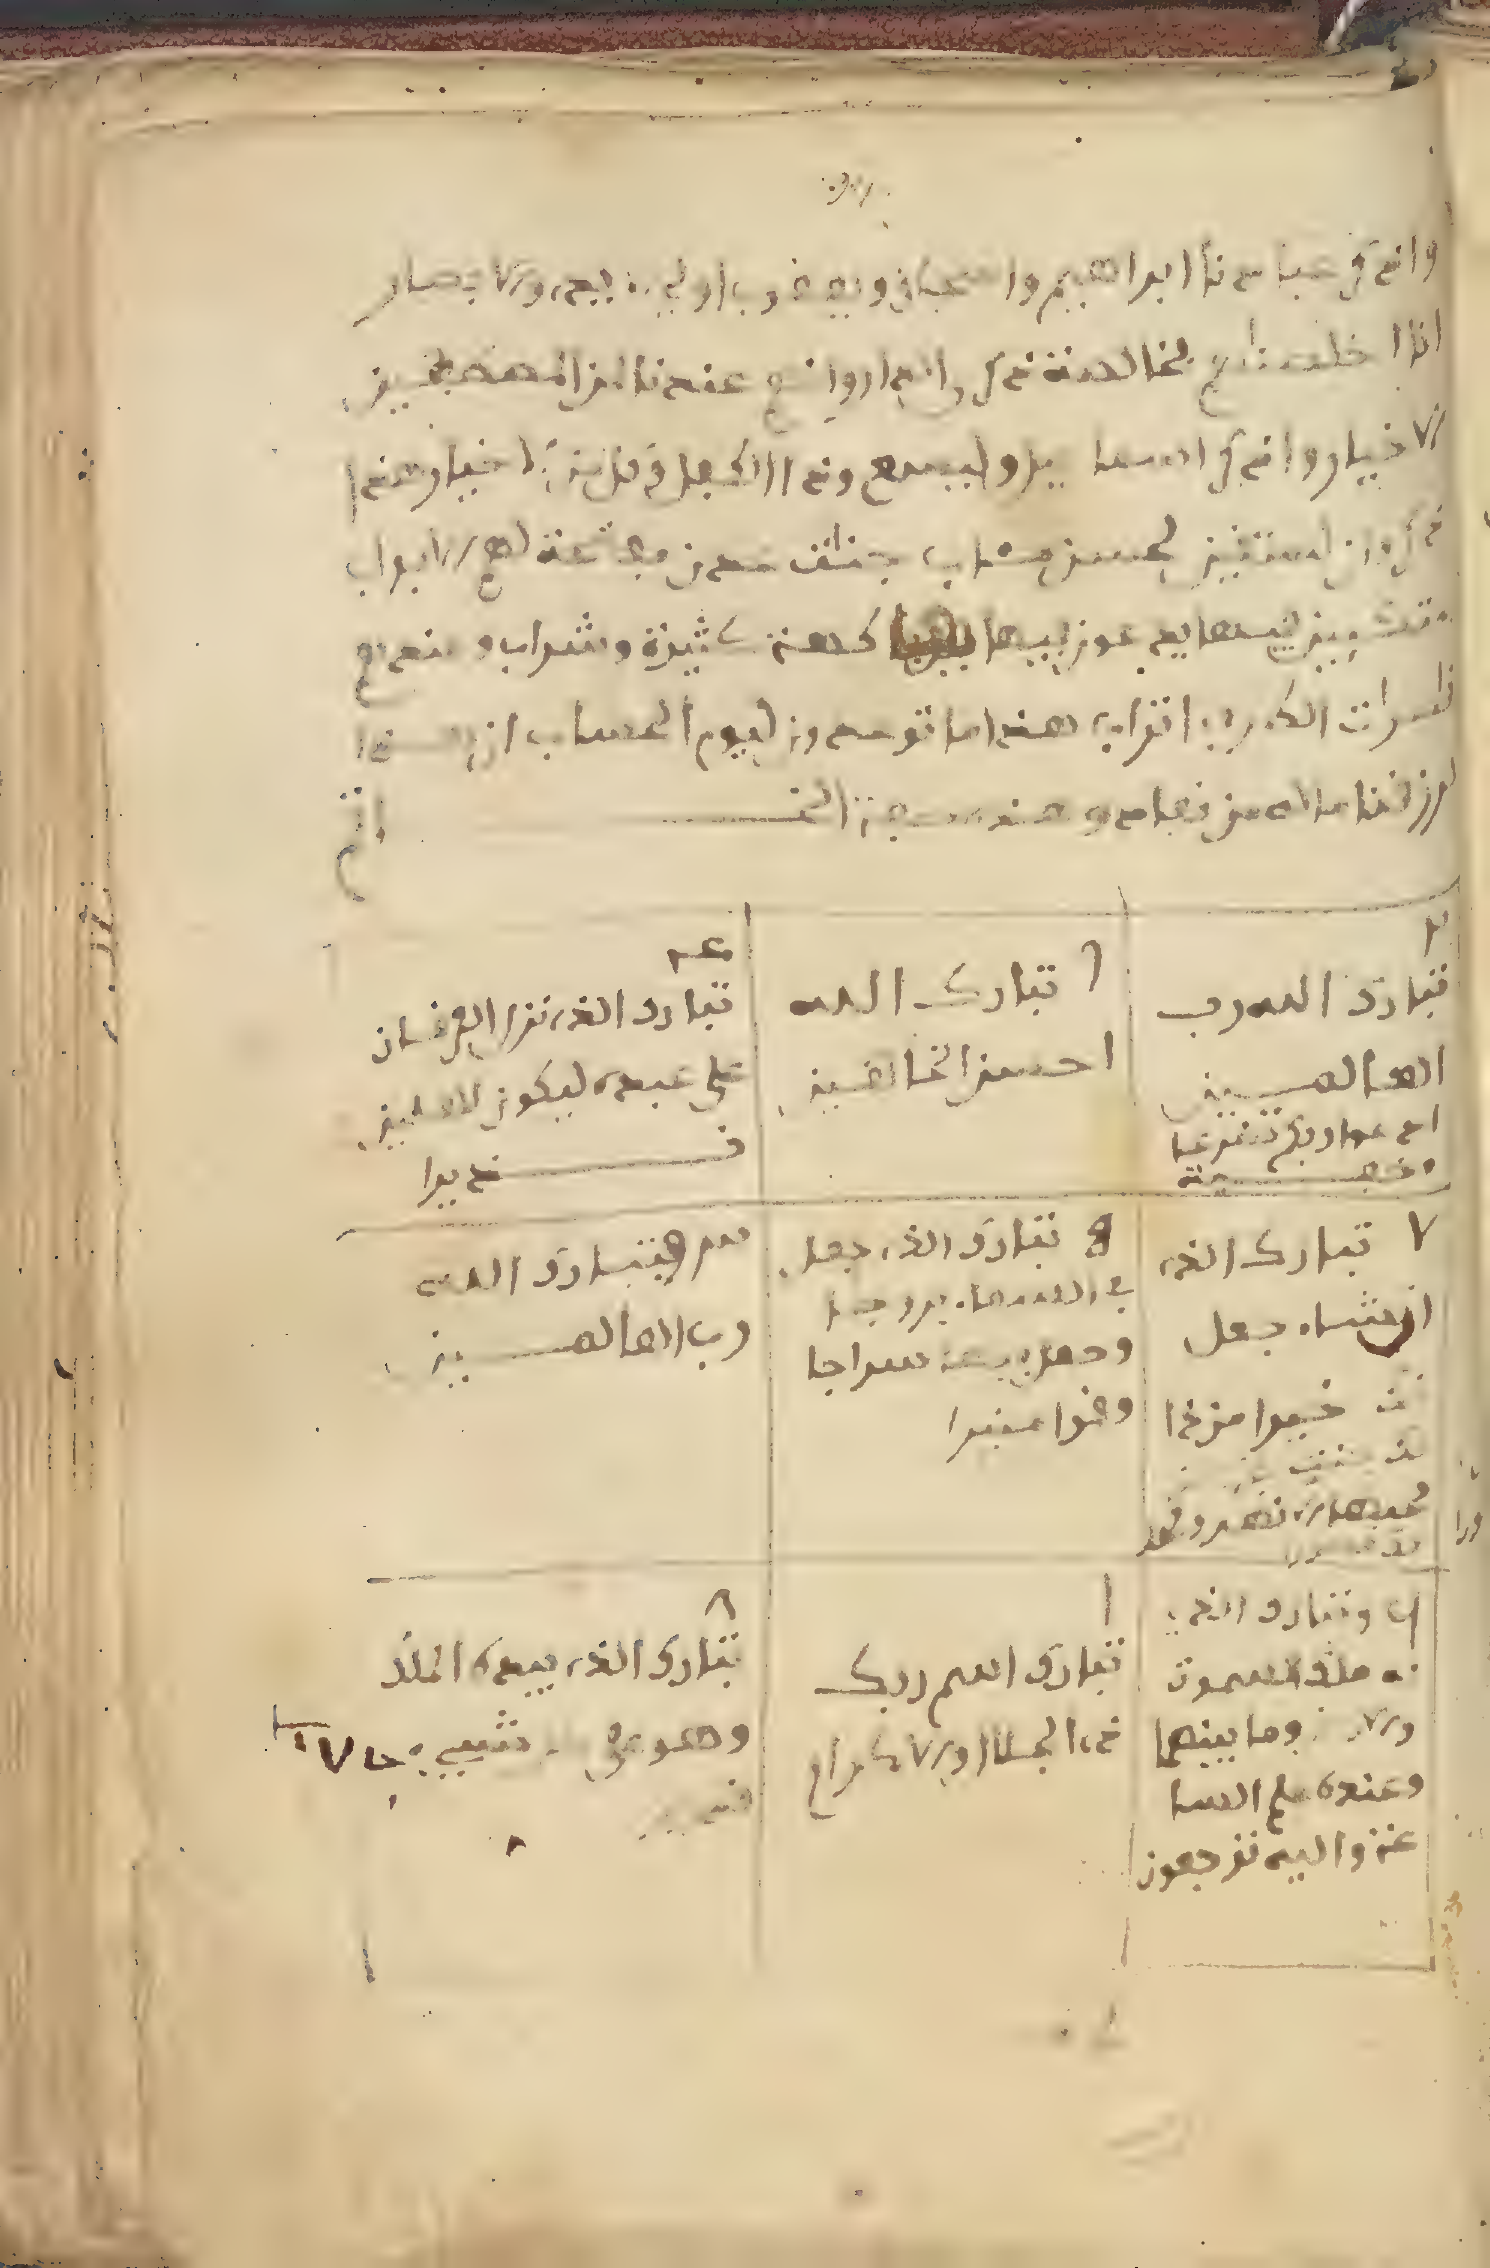 واذكر عبادنا ابراهيم واسحاق ويعقوب اولي الايدي والابصار
انا اخلصناهم بخالصة ذكرى الدار وانهم عندنا لمن المصطفين
الاخيار واذكر اسماعيل واليسع وذا الكفل وكل من الاخيار هذا
ذكر وان للمتقين لحسن مئاب جنات عدن مفتحة لهم الابواب
متكئين فيها يدعون فيها بفاكهة كثيرة وشراب وعندهم
قاصرات الطرف اتراب هذا ما توعدون ليوم الحساب ان هذا
لرزقنا ماله من نفاد وهذه صفة الخـــــاتم
٢
تبارك الله رب
العالمـــين
ادعوا ربكم تضرعا
وخفيـــة
٦ تبارك الله
احسن الخالقين
تبارك الذي نزل الفرقان
على عبده ليكون للعالمين
نـــذيرا
٧ تبارك الذي
ان شاء جعل
لك خيرا من ذا
لك جنات
تحتها الانهار
تبارك الذي جعل
في السماء بروجا
وجعل فيها سراجا
وقمرا منيرا
فتبارك الله
رب العالمـــين
وتبارك الذي
له ملك السموات
والارض وما بينهما
وعنده علم السا
عة واليه ترجعون
١
تبارك اسم ربك
ذي الجلال والاكرام
٨
تبارك الذي بيده الملك
وهو على كل شيء
قدير